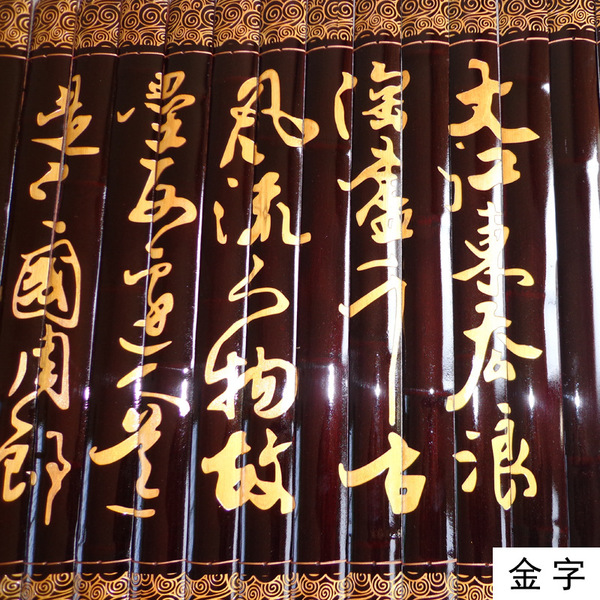 大江東去浪
淘盡千古
风流人物故
壘西邊人道
是三國周郎
金字